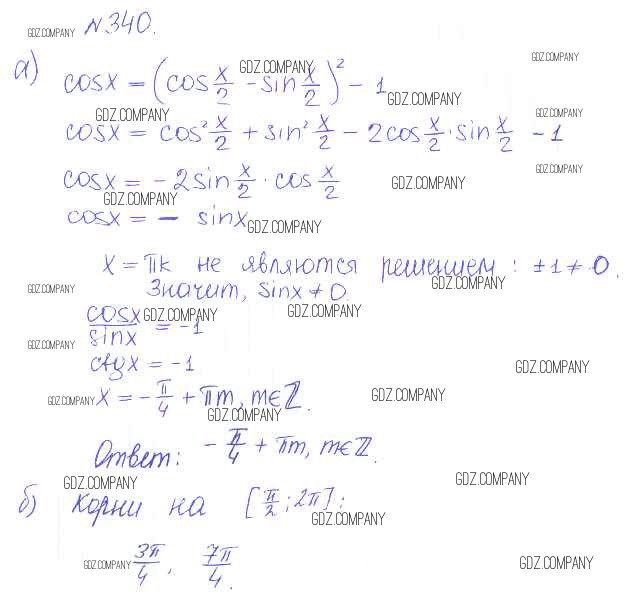 GDZ.COMPANY №340.
а) cosx = (cos x/2 - sin x/2)² - 1
GDZ.COMPANY GDZ.COMPANY GDZ.COMPANY
GDZ.COMPANY GDZ.COMPANY
cosx = cos² x/2 + sin² x/2 - 2cos x/2 · sin x/2 - 1
GDZ.COMPANY
cosx = -2sin x/2 · cos x/2 GDZ.COMPANY
GDZ.COMPANY
cosx = - sinx GDZ.COMPANY
x = πk не являются решением: ±1 ≠ 0.
GDZ.COMPANY Значит, sinx ≠ 0. GDZ.COMPANY
cosx/sinx = -1 GDZ.COMPANY GDZ.COMPANY
GDZ.COMPANY
ctgx = -1 GDZ.COMPANY
GDZ.COMPANY x = -π/4 + πm, m∈ℤ. GDZ.COMPANY
GDZ.COMPANY
Ответ: -π/4 + πm, m∈ℤ.
GDZ.COMPANY GDZ.COMPANY
б) Корни на [π/2; 2π]:
GDZ.COMPANY
GDZ.COMPANY 3π/4, 7π/4. GDZ.COMPANY